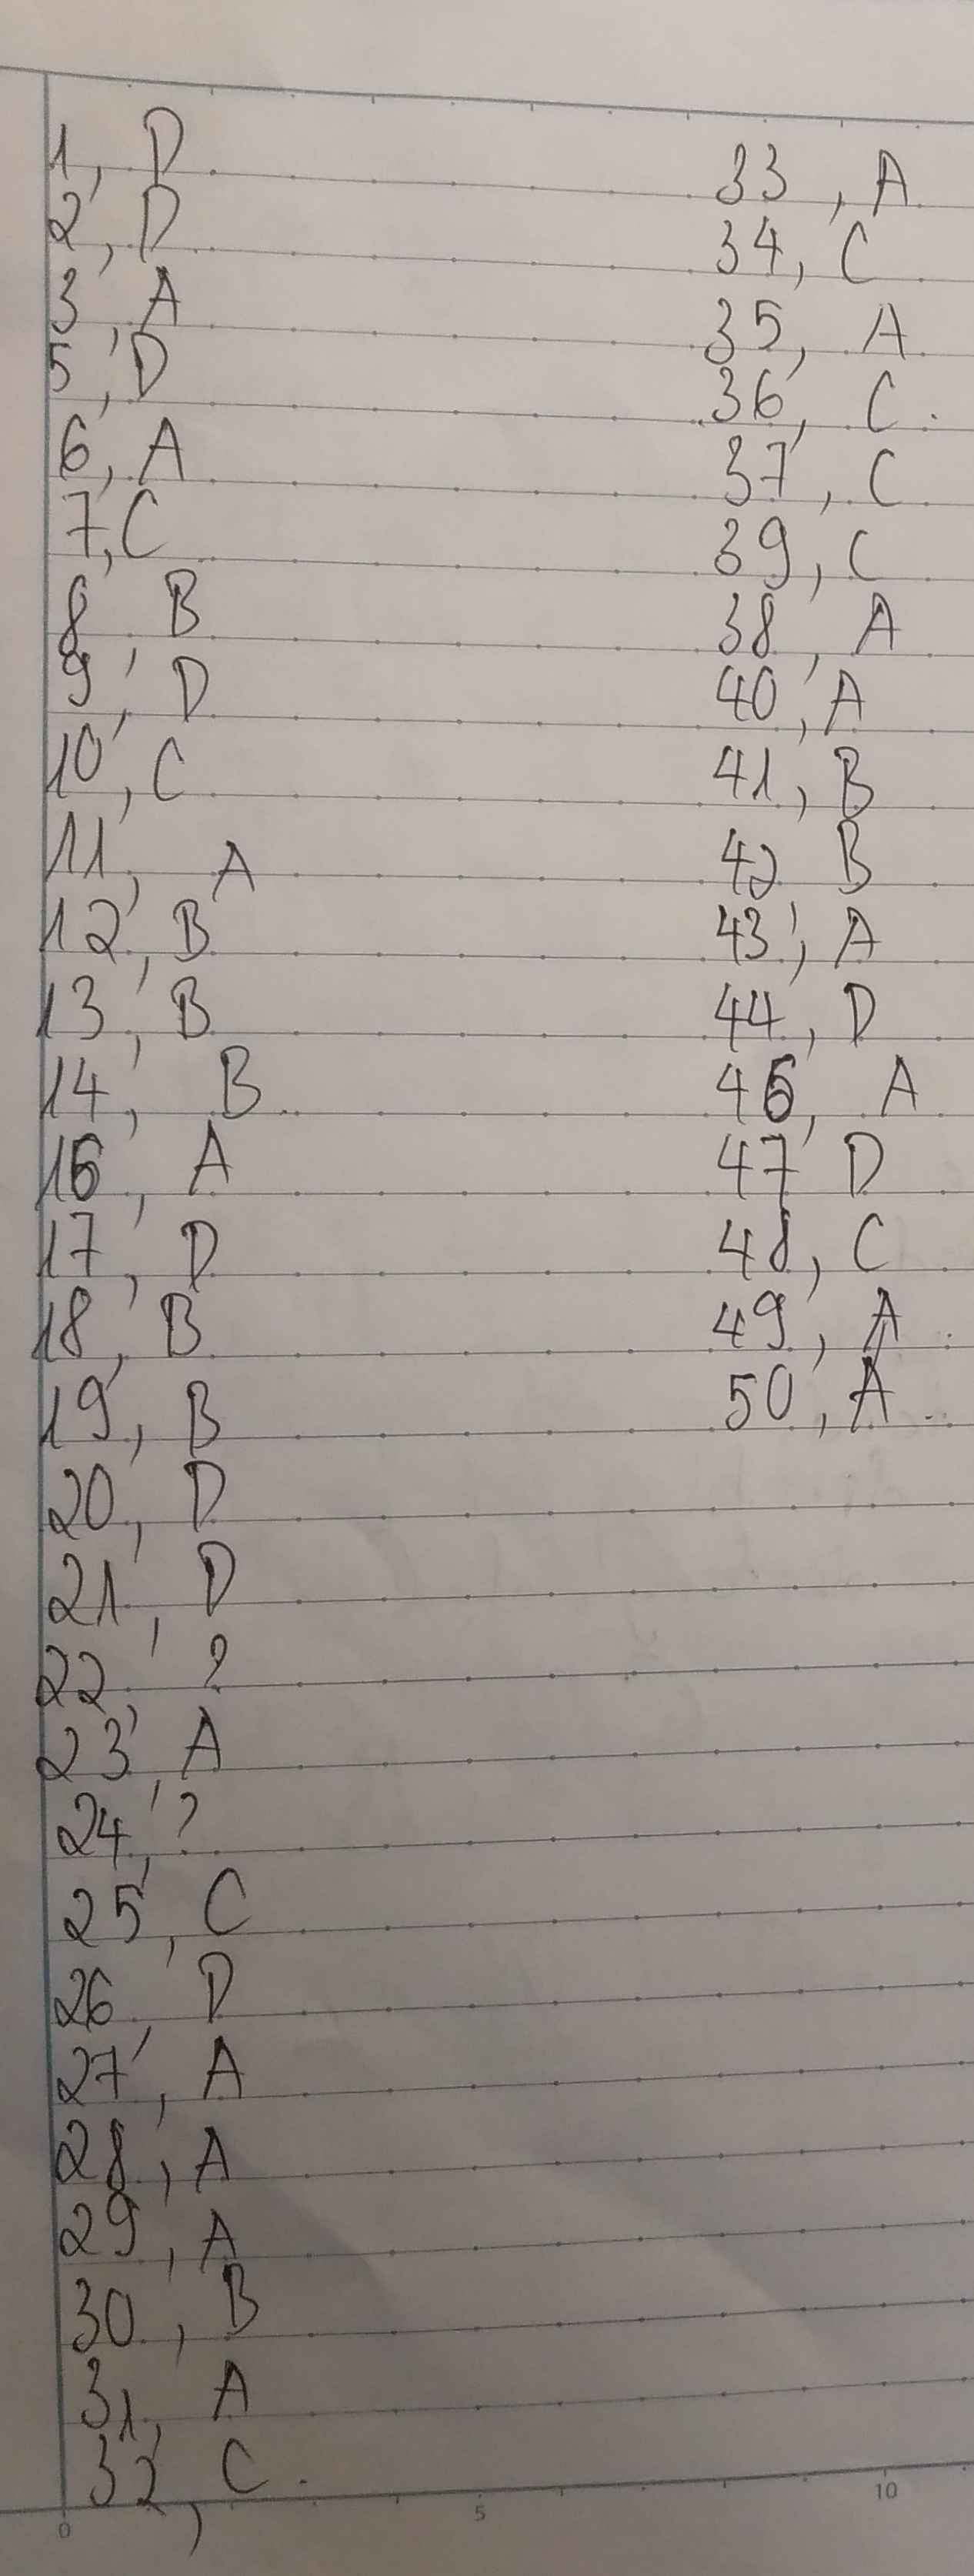 1, D
2, D
3, A
5, D
6, A
7, C
8, B
9, D
10, C
11, A
12, B
13, B
14, B
16, A
17, D
18, B
19, B
20, D
21, D
22, ?
23, A
24, ?
25, C
26, D
27, A
28, A
29, A
30, B
31, A
32, C.
33, A
34, C
35, A
36, C.
37, C
39, C
38, A
40, A
41, B
42 B
43, A
44, D
46, A
47 D
48, C
49, A
50, A
0 5 10